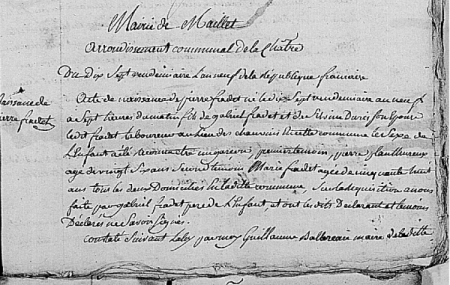 Mairie de Maillet
arrondissement communal de la Châtre
Du dix Sept vendemiaire L'an neuf de la République françaire
naissance de
pierre fradet
Acte de naissance de pierre fradet né le dix Sept vendemiaire an neuf
a Sept heures du matin fils de gabriel fradet et de Silvine son Epouse
le dit fradet laboureur au lieu des chauvins ditte commune le Sexe de
L'Enfant a été reconnu etre un garcon, premier temoin, pierre
age de vingt Six ans Second temoin Marie fradet agée de cinquante
ans tous les deux Domiciliés Susditte commune Sur la requisition a nous
faite par gabriel fradet pere de L'Enfant, et ont les dits Declarant et temoins
Déclarés ne Savoir Signer
Constaté Suivant La loy par moy Guillaume maire de la ditte